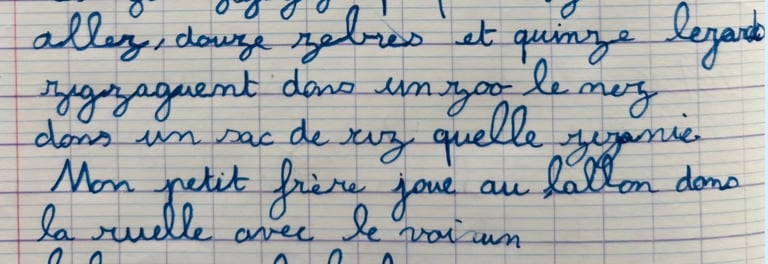 allez, douze zebres et quinze lezards
zigzaguent dans un zoo le nez
dans un sac de riz quelle zizanie.
Mon petit frère joue au ballon dans
la ruelle avec le voisin